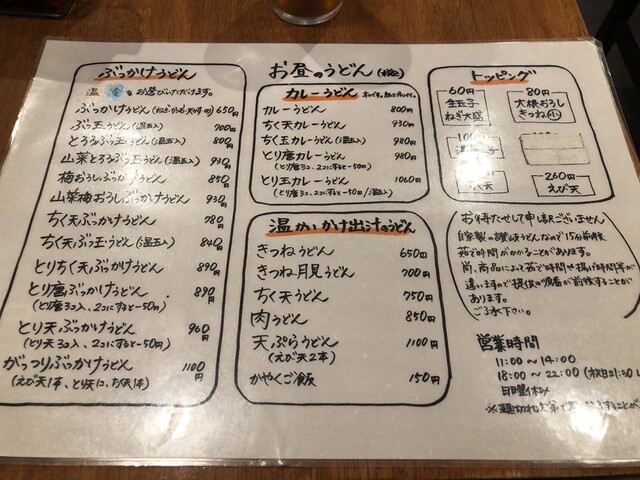 ぶっかけうどん
温 冷 をお選びいただけます。
ぶっかけうどん 650円
ぶっ玉うどん(温玉入) 700円
とろろぶっ玉うどん(温玉入) 800円
山菜とろろぶっ玉うどん(温玉入) 930円
梅おろしぶっかけうどん 850円
山菜梅おろしぶっかけうどん 930円
ちく天ぶっかけうどん 780円
ちく天ぶっ玉うどん(温玉入) 840円
とりちく天ぶっかけうどん 890円
とり唐ぶっかけうどん 890円
(とり唐3コ入、2コにすると-50円)
とり天ぶっかけうどん 960円
(とり天3コ入、2コにすると-50円)
がっつりぶっかけうどん 1100円
(えび天1本、とり天1コ、ちく天1本)
お昼のうどん
カレーうどん
カレーうどん 800円
ちく天カレーうどん 930円
ちく玉カレーうどん(温玉入) 980円
とり唐カレーうどん 980円
(とり唐3コ入、2コにすると-50円)
とり玉カレーうどん 1060円
(とり唐3コ入、2コにすると-50円/温玉入)
温かいかけ出汁のうどん
きつねうどん 650円
きつね月見うどん 700円
ちく天うどん 750円
肉うどん 850円
天ぷらうどん 1100円
(えび天2本)
かやくご飯 150円
トッピング
60円
生玉子
ねぎ大盛
80円
大根おろし
きつね(小)
ちく天
260円
えび天
お待たせして申し訳ございません
自家製の うどんなので15分前後
茹で時間がかかることがあります。
尚、商品によって茹で時間や揚げ時間等が
違いますので提供の順番が前後することが
あります。
ご了承下さい。
営業時間
11:00~14:00
18:00~22:00
日曜休み